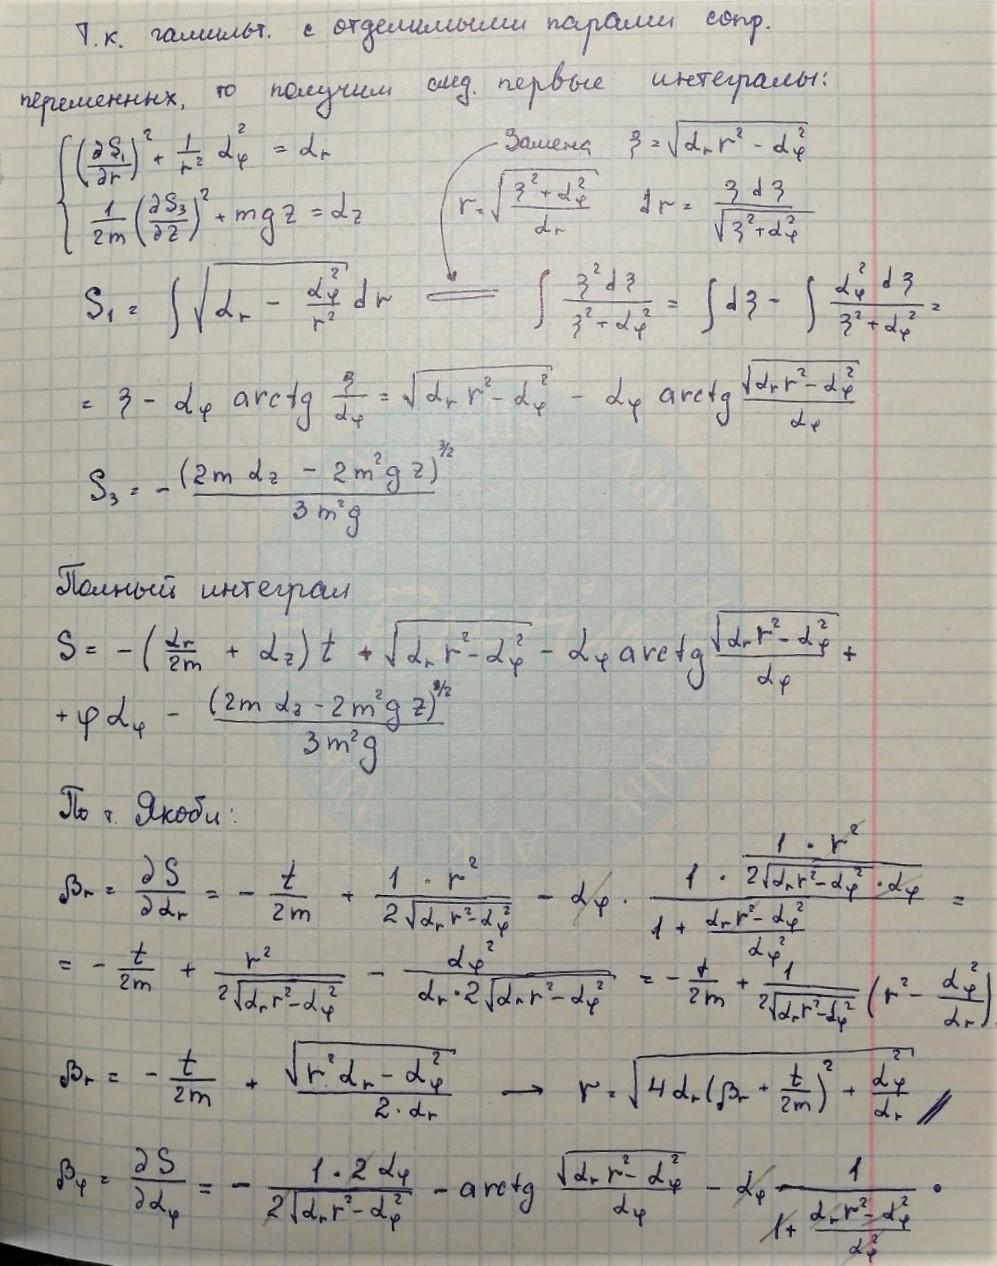 Т.к. гамильт. с отделимыми парами сопр.
переменных, то получим след. первые интегралы:
{ (∂S₁/∂r)² + 1/r² α_φ² = α_r
1/2m (∂S₃/∂z)² + mgz = α_z
Замена ξ = √(α_r r² - α_φ²)
r = √((ξ² + α_φ²)/α_r) dr = ξ dξ/√(ξ² + α_φ²)
S₁ = ∫ √(α_r - α_φ²/r²) dr = ∫ ξ² dξ/(ξ² + α_φ²) = ∫ dξ - ∫ α_φ² dξ/(ξ² + α_φ²) =
= ξ - α_φ arctg ξ/α_φ = √(α_r r² - α_φ²) - α_φ arctg √(α_r r² - α_φ²)/α_φ
S₃ = - (2m α_z - 2m²g z)^(3/2)/(3m²g)
Полный интеграл
S = - (α_r/2m + α_z) t + √(α_r r² - α_φ²) - α_φ arctg √(α_r r² - α_φ²)/α_φ +
+ φ α_φ - (2m α_z - 2m²g z)^(3/2)/(3m²g)
По т. Якоби:
β_r = ∂S/∂α_r = - t/2m + 1·r²/(2√(α_r r² - α_φ²)) - α_φ · (1 · 1·r²/(2√(α_r r² - α_φ²)·α_φ))/(1 + (α_r r² - α_φ²)/α_φ²) =
= - t/2m + r²/(2√(α_r r² - α_φ²)) - α_φ²/(α_r·2√(α_r r² - α_φ²)) = - t/2m + 1/(2√(α_r r² - α_φ²)) (r² - α_φ²/α_r)
β_r = - t/2m + √(r² α_r - α_φ²)/(2·α_r) → r = √(4α_r(β_r + t/2m)² + α_φ²/α_r) //
β_φ = ∂S/∂α_φ = - 1·2α_φ/(2√(α_r r² - α_φ²)) - arctg √(α_r r² - α_φ²)/α_φ - α_φ 1/(1 + (α_r r² - α_φ²)/α_φ²) ·